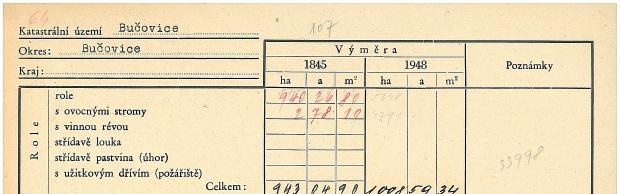 64
107
Katastrální území Bučovice
Okres: Bučovice
Kraj:
Výměra
1845 1948 Poznámky
ha a m² ha a m²
Role
role 940 26 80
s ovocnými stromy 2 78 10
s vinnou révou
střídavě louka
střídavě pastvina (úhor)
s užitkovým dřívím (požářiště)
33998
Celkem: 943 04 90 1008 59 34